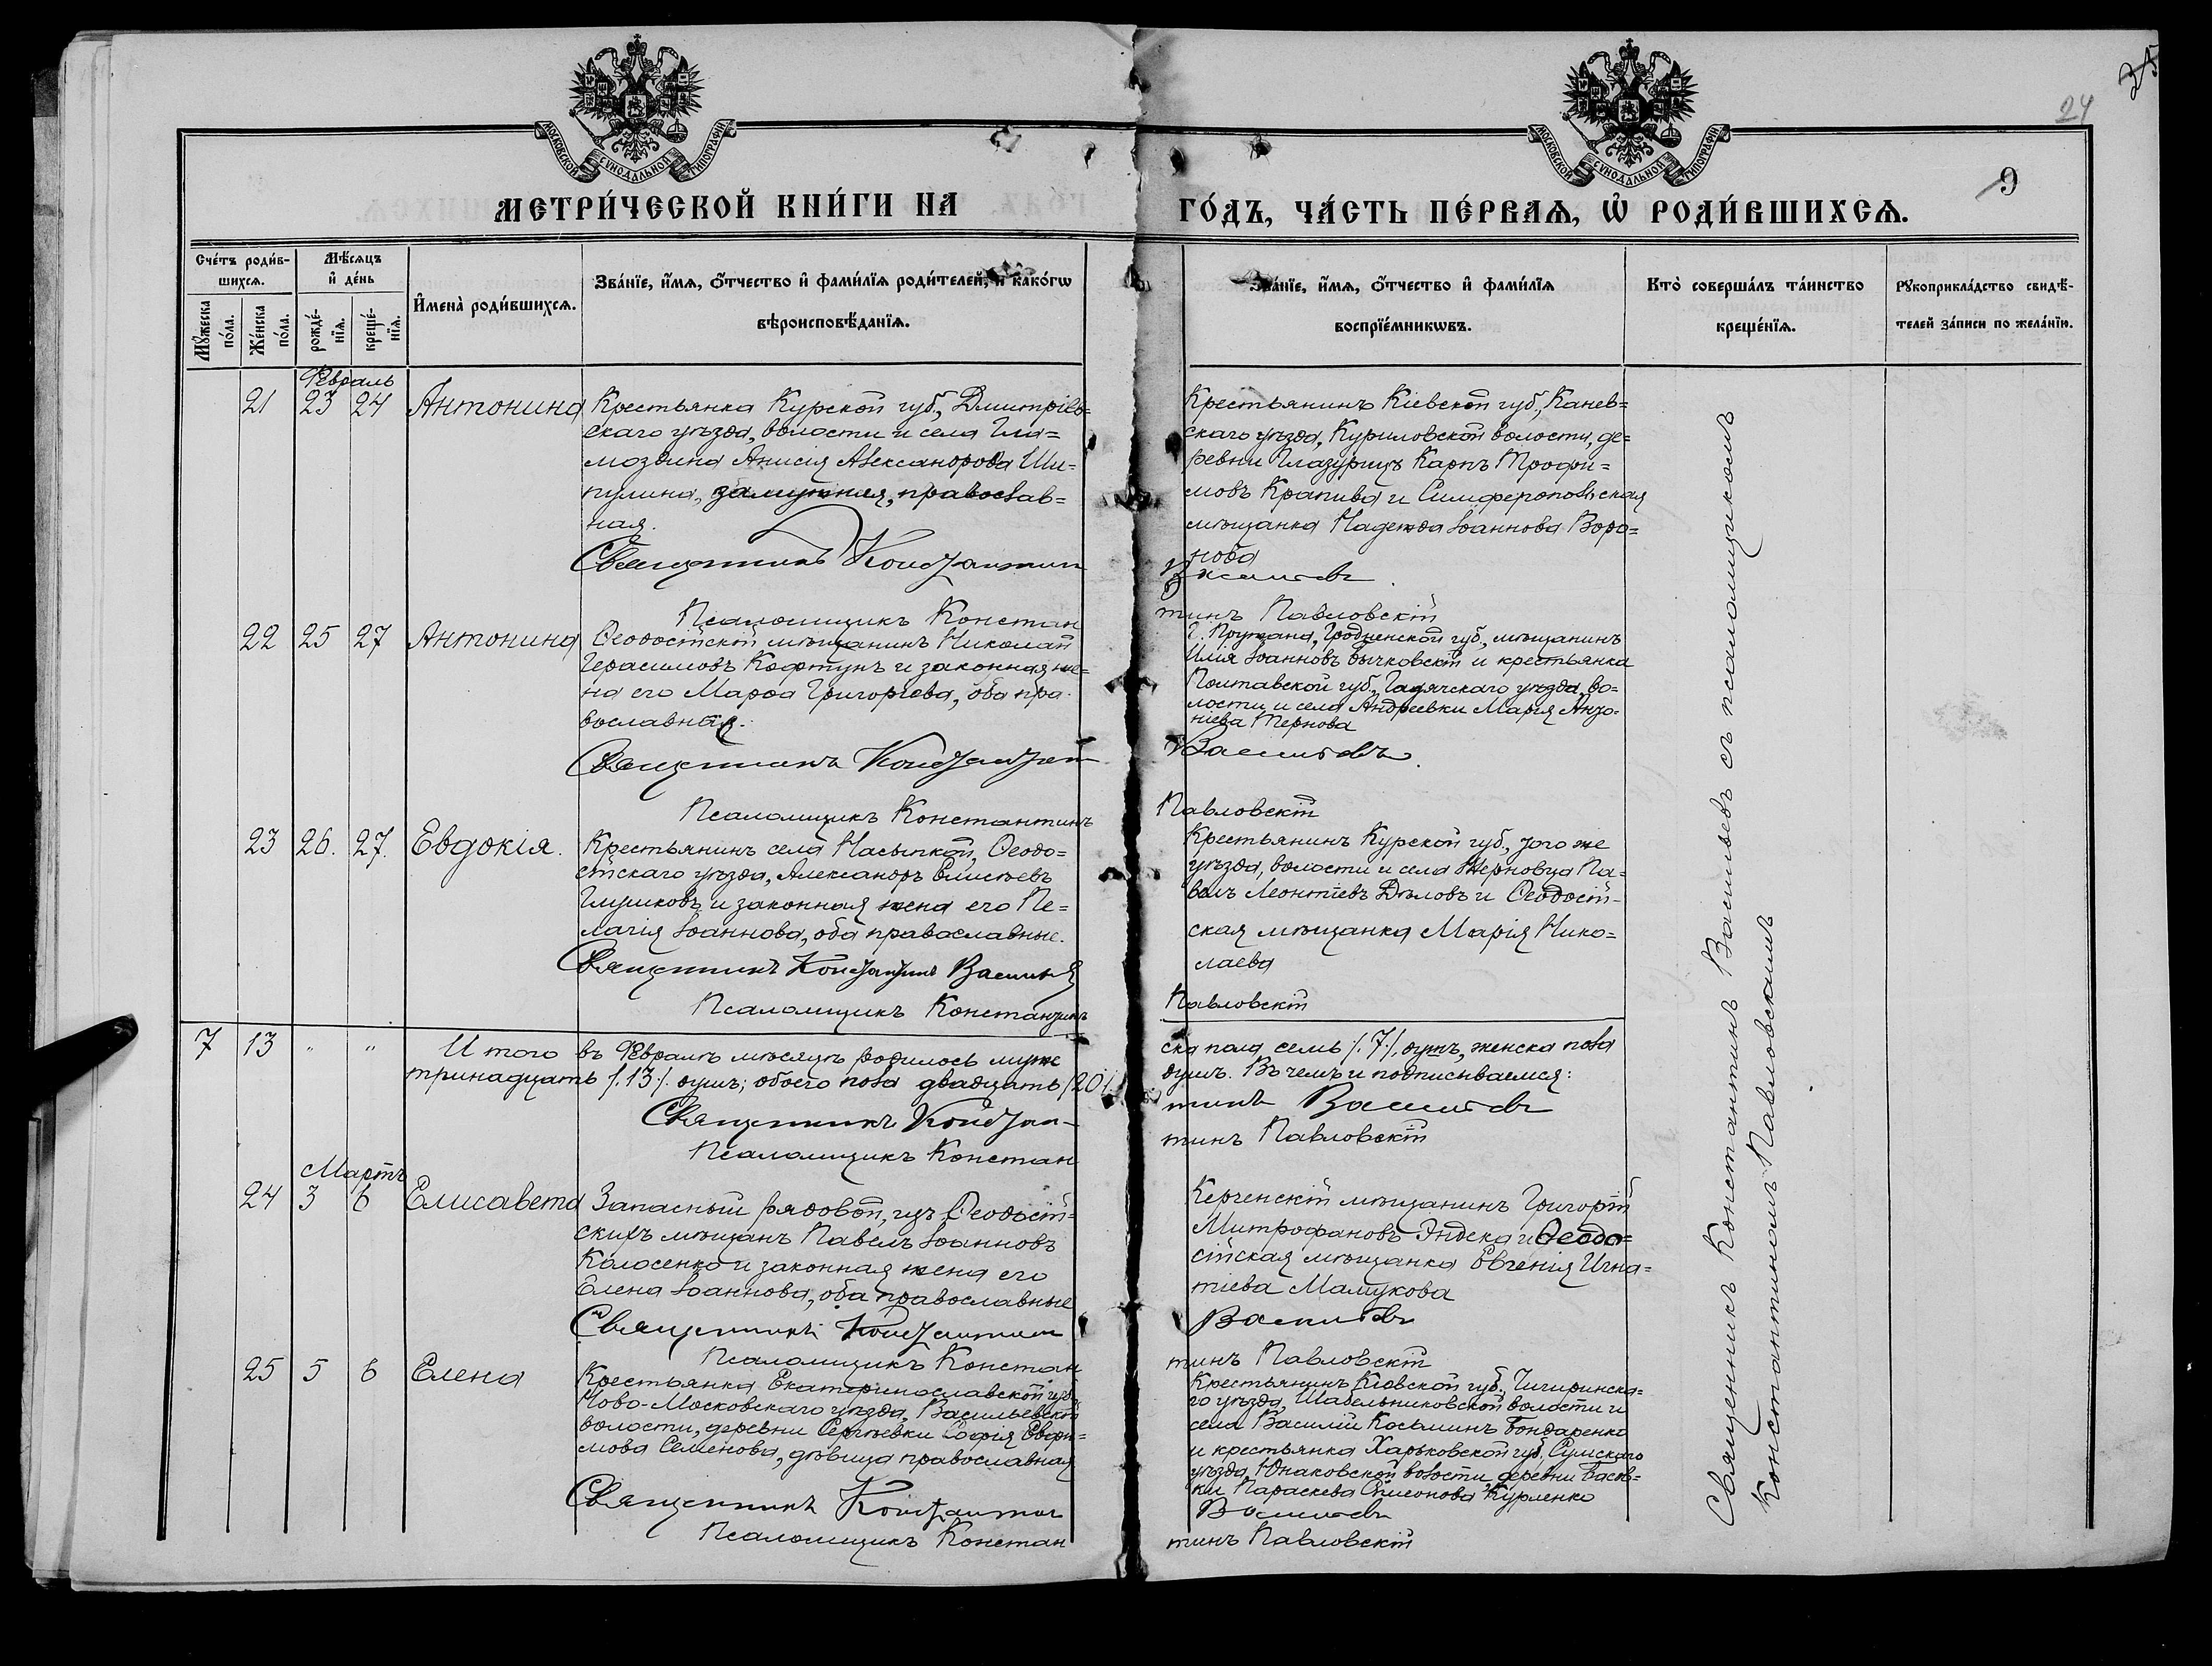 25
24
9
МОСКОВСКОЙ СѴНОДАЛЬНОЙ ТИПОГРАФІИ
МОСКОВСКОЙ СѴНОДАЛЬНОЙ ТИПОГРАФІИ
МЕТРИ́ЧЕСКОЙ КНИ́ГИ НА
ГО́ДЪ, ЧА́СТЬ ПЕ́РВАѦ, Ѡ҆ РОДИ́ВШИХСѦ.
Сче́тъ роди́в-
шихсѧ.
Мꙋ́жеска
по́ла.
Же́нска
по́ла.
Мѣ́сѧцъ
и҆ де́нь
рожде́-
нїѧ.
креще́-
нїѧ.
И҆мена̀ роди́вшихсѧ.
Зва́нїе, и҆́мѧ, ѻ҆́тчество и҆ фами́лїѧ роди́телей, и҆ како́гѡ
вѣроисповѣ́данїѧ.
Зва́нїе, и҆́мѧ, ѻ҆́тчество и҆ фами́лїѧ
воспрїе́мникѡвъ.
Кто̀ соверша́лъ та́инство
креще́нїѧ.
Рꙋкоприкла́дство свидѣ́-
телей за́писи по жела́нїю.
Февраль
21 23 24 Антонина
Крестьянка Курской губ., Дмитріев=
скаго уѣзда, волости и села Гла=
моздина Анисія Александрова Ши-
пулина, замужняя, православ=
ная.
Священникъ Константин
Псаломщикъ Констан
Крестьянинъ Кіевской губ., Канев=
скаго уѣзда, Куриловской волости, де=
ревни Глазурицъ Карпъ Трофи=
мовъ Крапива и Симферопольская
мѣщанка Надежда Іоаннова Воро=
нова
Васильевъ
тинъ Павловскій
22 25 27 Антонина
Ѳеодосійскій мѣщанинъ Николай
Герасимовъ Кофтунъ и законная же=
на его Марѳа Григоріева, оба пра
вославная.
Священникъ Константин
Псаломщикъ Константинъ
Г. Пружана, Гродненской губ., мѣщанинъ
Илія Іоанновъ Бычковскій и крестьянка
Полтавской губ., Гадячскаго уѣзда, во=
лости и села Андреевки Марія Анто=
ніева Тернова
Васильевъ.
Павловскій
23 26. 27. Евдокія.
Крестьянинъ села Насыпкой, Ѳеодо=
сійскаго уѣзда, Александръ Елисѣевъ
Глушковъ и законная жена его Пе=
лагія Іоаннова, оба православные.
Священникъ Константинъ Васильевъ
Псаломщикъ Константинъ
Крестьянинъ Курской губ., того же
уѣзда, волости и села Жерновца Па=
велъ Леонтіевъ Дѣловъ и Ѳеодосій-
ская мѣщанка Марія Нико=
лаева
Павловскій
7 13 " " Итого въ Февралѣ мѣсяцѣ родилось муже
ска пола семь /.7./. душъ, женска пола
тринадцать /.13./. душъ; обоего пола двадцать /20/.
душъ. Въ чемъ и подписываемся:
Священникъ Констан-
тинъ Васильевъ
Псаломщикъ Констан
тинъ Павловскій
Мартъ
24 3 6 Елисавета
Запасный рядовой, изъ Ѳеодосій=
скихъ мѣщанъ Павелъ Іоанновъ
Колосенко и законная жена его
Елена Іоаннова, оба православные
Священникъ Константин
Псаломщикъ Констан
Керченскій мѣщанинъ Григорій
Митрофановъ Эндека и Ѳеодо=
сійская мѣщанка Евгенія Игна=
тіева Мамукова
Васильевъ
тинъ Павловскій
25 5 6 Елена
Крестьянка Екатеринославской губ.,
Ново-Московскаго уѣзда, Васильевской
волости, деревни Сергѣевки Софія Евфи=
мова Семенова, дѣвица православная
Священникъ Константин
Псаломщикъ Констан
Крестьянинъ Кіевской губ., Чигиринска=
го уѣзда, Шабельниковской волости и
села Василій Косьминъ Бондаренко
и крестьянка Харьковской губ., Сумскаго
уѣзда, Юнаковской волости, деревни Басов=
ки Параскева Симеонова Курленко
Васильевъ
тинъ Павловскій
Священникъ Константинъ Васильевъ съ псаломщикомъ
Константиномъ Павловскимъ